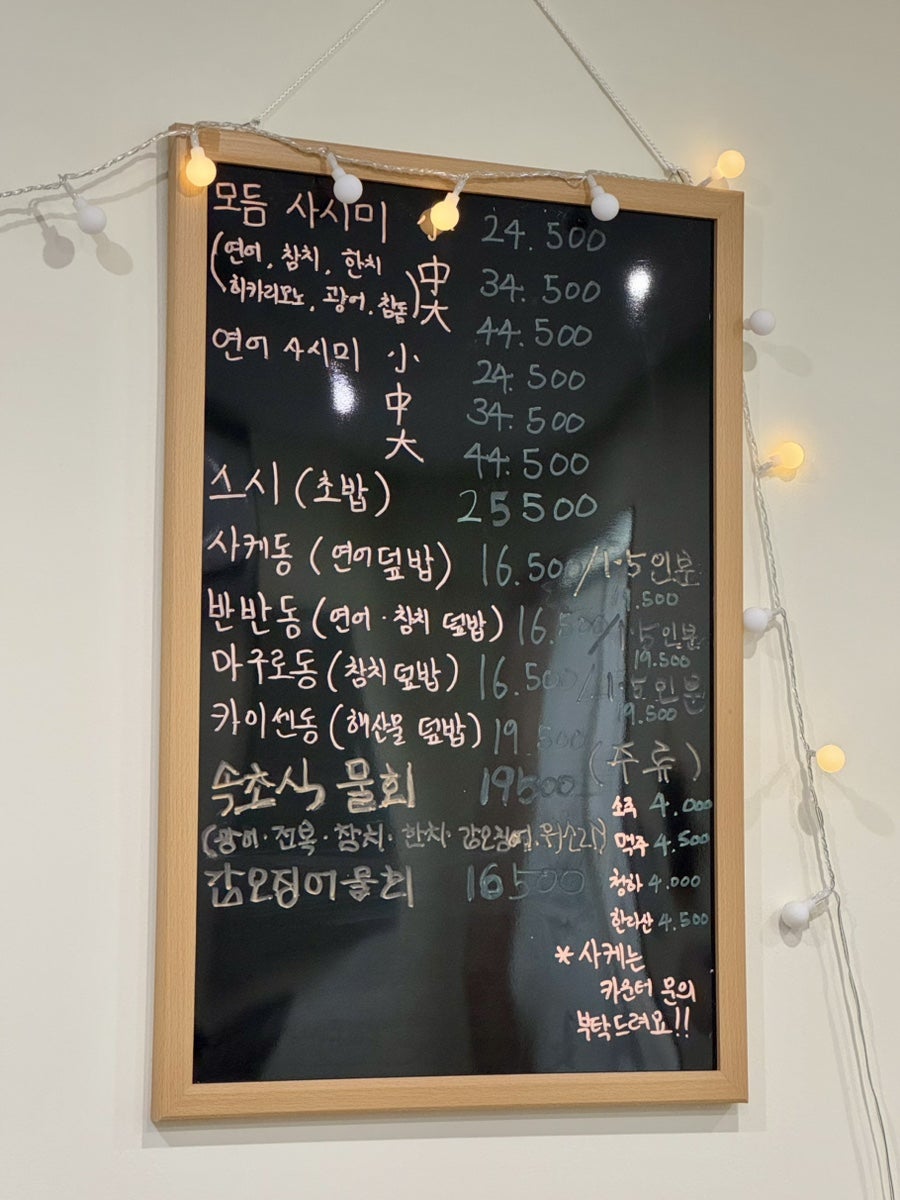 모듬 사시미 小 24.500
(연어, 참치, 한치 中 34.500
히카리모노, 광어, 참돔) 大 44.500
연어 사시미 小 24.500
中 34.500
大 44.500
스시 (초밥) 25500
사케동 (연어덮밥) 16.500/1.5인분
19.500
반반동 (연어·참치 덮밥) 16.500/1.5인분
19.500
마구로동 (참치덮밥) 16.500/1.5인분
19.500
카이센동 (해산물 덮밥) 19.500
속초식 물회 19500
(광어·전복·참치·한치·갑오징어·뿔소라)
갑오징어물회 16500
(주류)
소주 4.000
맥주 4.500
청하 4.000
한라산 4.500
*사케는
카운터 문의
부탁드려요!!